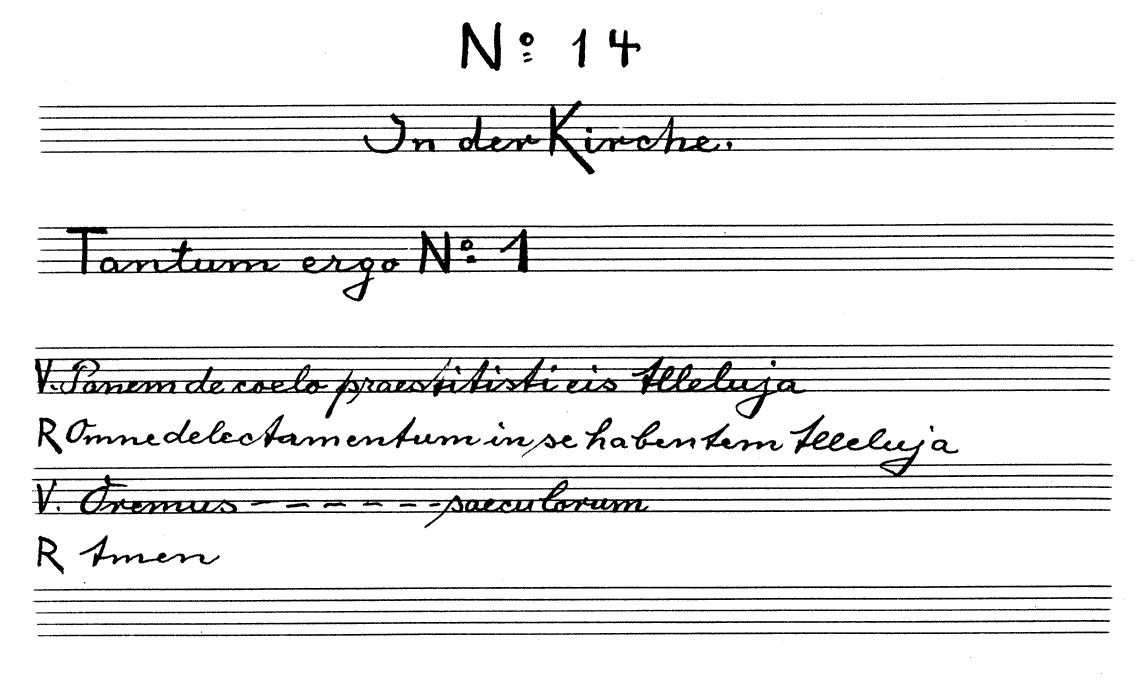 Nº 14
In der Kirche.
Tantum ergo Nº 1
V. Panem de coelo praestitisti eis Alleluja
R Omne delectamentum in se habentem Alleluja
V. Oremus - - - - - - - saeculorum
R Amen